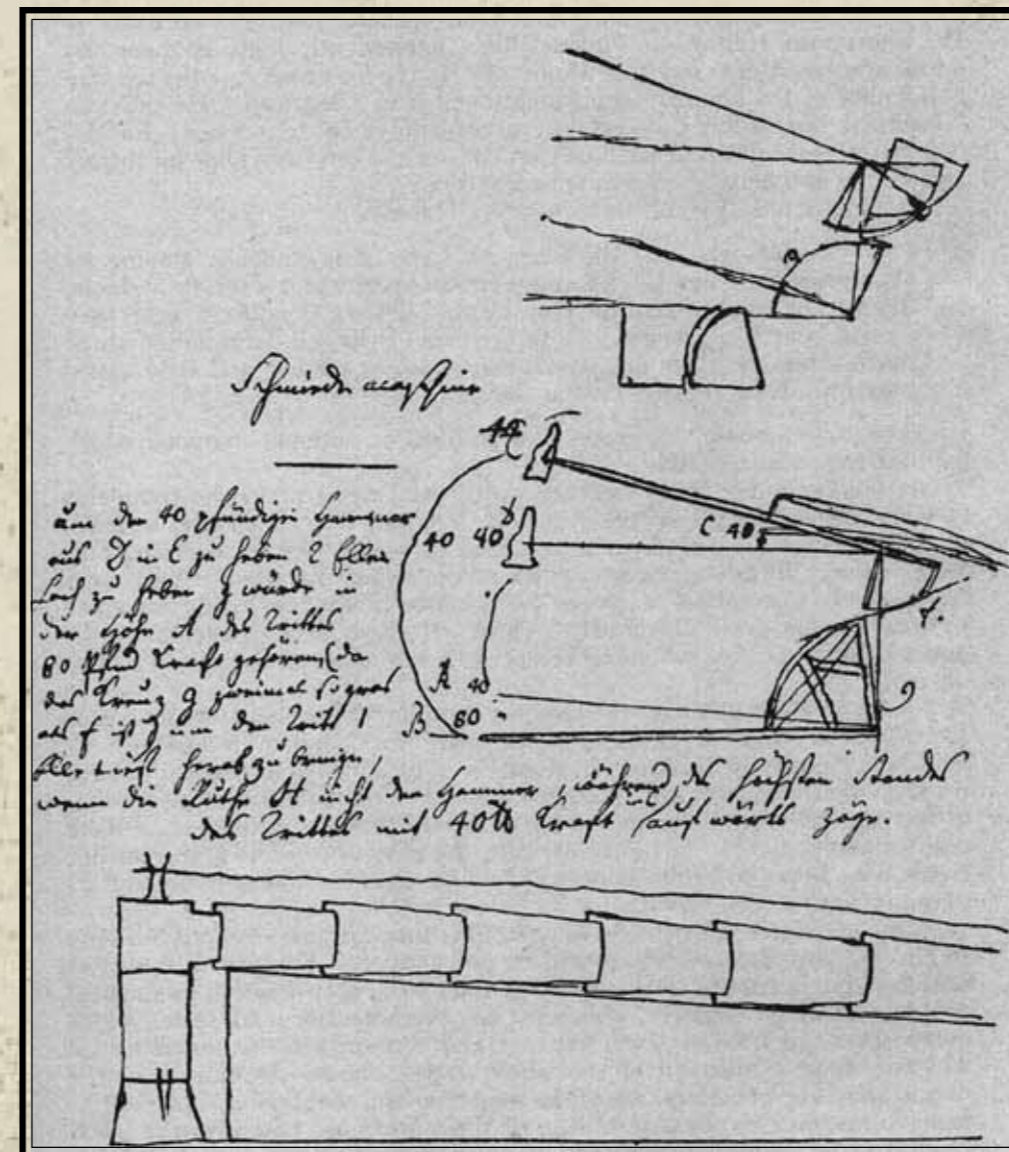 Schmiede maschine
44 E
um den 40 pfündigen Hammer
aus D in E zu heben 2 Ellen
hoch zu heben würde in
der Höhe A des Trittes
80 Pfund Kraft gehören, (da
das Kreuz g zweimal so gros
als f ist) um den Tritt 1
Elle tief herab zu bringen,
wenn die Ruthe H nicht den Hammer, während des höchsten Standes
des Trittes mit 40 ℔ Kraft aufwärts zöge.
40 40 D
C 40
f.
A 40
g
B 80